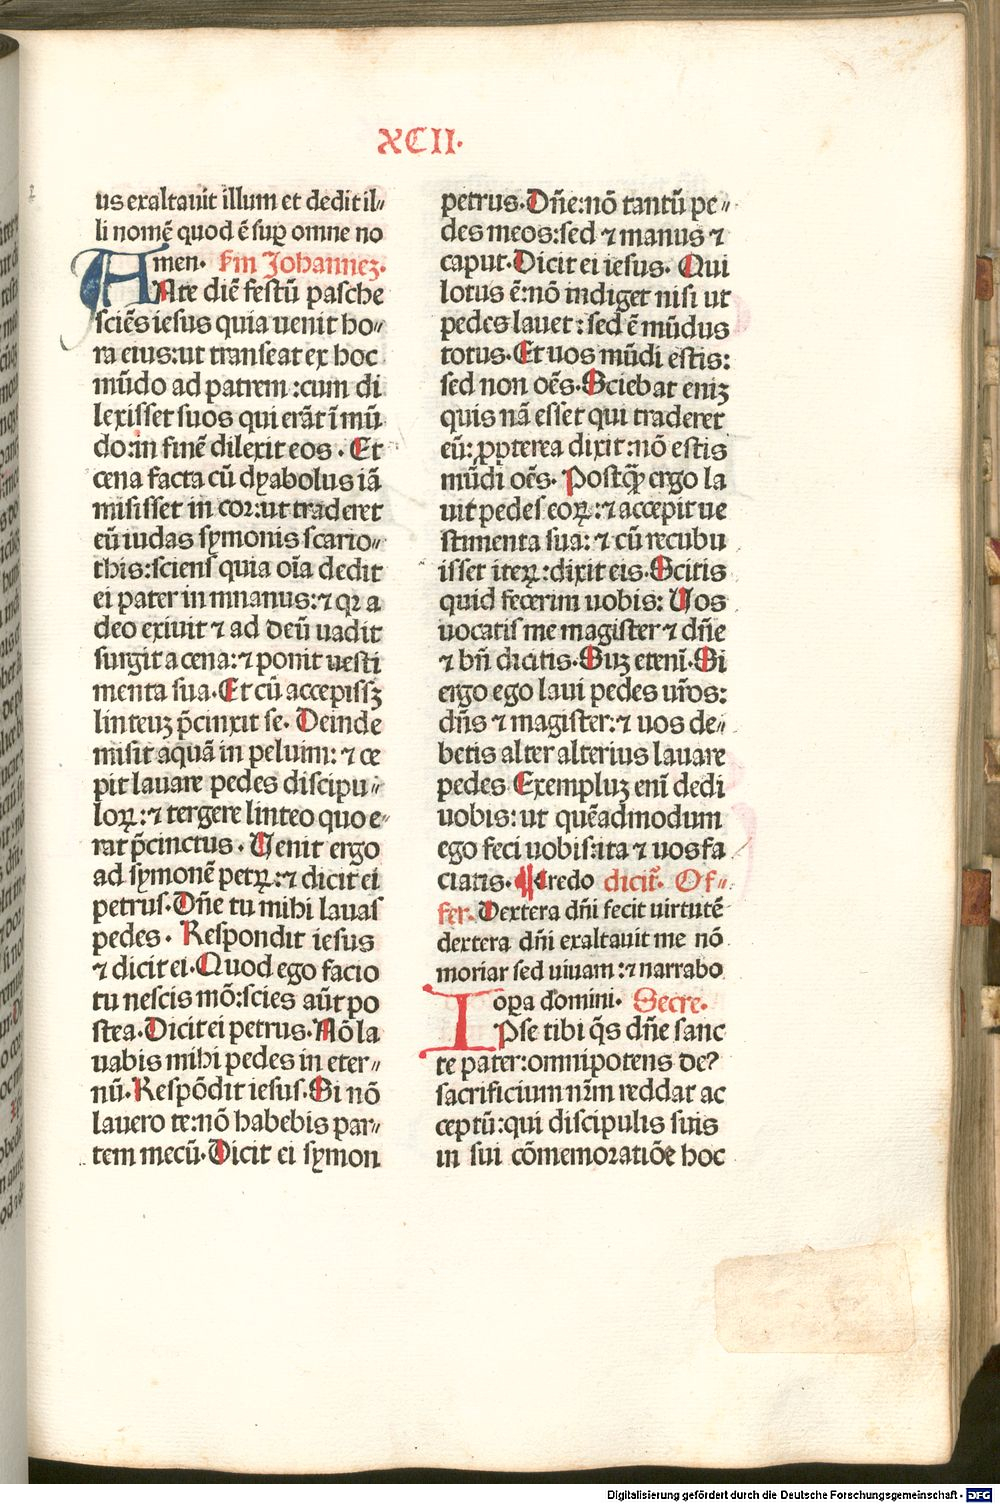 XCII.
us exaltauit illum et dedit il〃
li nomē quod ē suꝑ omne no
men. Fm Johannez.
ANte diē festū pasche
sciēs iesus quia uenit ho〃
ra eius:ut transeat ex hoc
mūdo ad patrem:cum di
lexisset suos qui erāt ī mū
do:in finē dilexit eos. Et
cena facta cū dyabolus iā
misisset in cor:ut traderet
eū iudas symonis scario〃
this:sciens quia oīa dedit
ei pater in mnanus:⁊ qꝛ a
deo exiuit ⁊ ad deū uadit
surgit a cena:⁊ ponit uesti
menta sua. Et cū accepissꝫ
linteuꝫ p̄cinxit se. Deinde
misit aquā in peluim:⁊ ce
pit lauare pedes discipu〃
loꝝ:⁊ tergere linteo quo e〃
rat p̄cinctus. Uenit ergo
ad symonē petꝝ:⁊ dicit ei
petrus. Dn̄e tu mihi lauas
pedes. Respondit iesus
⁊ dicit ei. Quod ego facio
tu nescis mō:scies aūt po
stea. Dicit ei petrus. Nō la
uabis mihi pedes in eter〃
nū. Respōdit iesus. Si nō
lauero te:nō habebis par〃
tem mecū. Dicit ei symon
petrus. Dn̄e:nō tantū pe〃
des meos:sed ⁊ manus ⁊
caput. Dicit ei iesus. Qui
lotus ē:nō indiget nisi ut
pedes lauet:sed ē mūdus
totus. Et uos mūdi estis:
sed non oēs. Sciebat eniꝫ
quis nā esset qui traderet
eū:ꝓpterea dixit:nō estis
mūdi oēs. Postꝙ̄ ergo la
uit pedes eoꝝ:⁊ accepit ue
stimenta sua:⁊ cū recubu
isset iteꝝ:dixit eis. Scitis
quid fecerim uobis: Uos
uocatis me magister ⁊ dn̄e
⁊ bn̄ dicitis. Suꝫ etenī. Si
ergo ego laui pedes ur̄os:
dn̄s ⁊ magister:⁊ uos de〃
betis alter alterius lauare
pedes. Exempluꝫ enī dedi
uobis:ut quēadmodum
ego feci uobis:ita ⁊ uos fa
ciatis. Credo dicit̉. Of〃
fer. Dextera dn̄i fecit uirtutē
dextera dn̄i exaltauit me nō
moriar sed uiuam:⁊ narrabo
opa domini. Secre.
IPse tibi q̄s dn̄e sanc
te pater:omnipotens de?
sacrificium nr̄m reddat ac
ceptū:qui discipulis suis
in sui cōmemoratiōe hoc
Digitalisierung gefördert durch die Deutsche Forschungsgemeinschaft - DFG